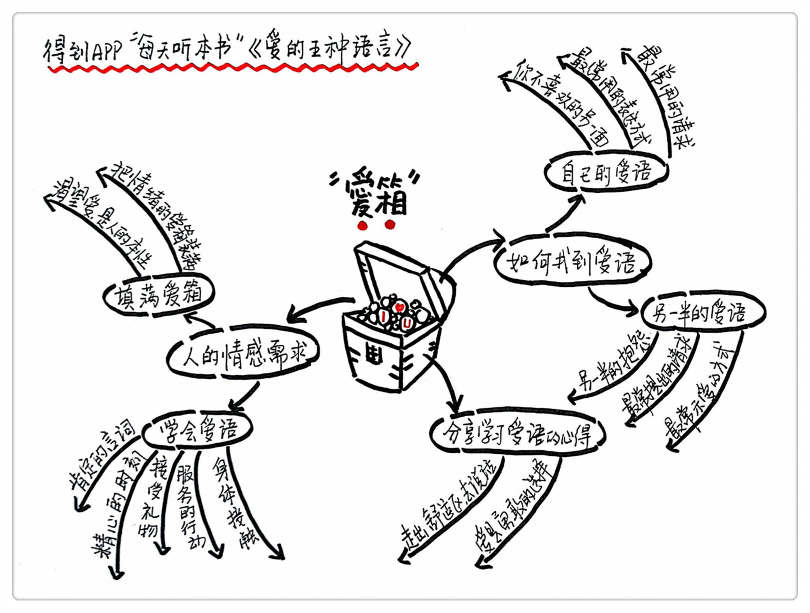 得到APP"每天听本书"《爱的五种语言》
"爱箱"
I U
人的情感需求
填满爱箱
渴望爱是人的本性
把情绪的爱箱装满
学会爱语
肯定的言词
精心的时刻
接受礼物
服务的行动
身体接触
如何找到爱语
自己的爱语
你不喜欢的另一面
最常用的表达方式
最常用的请求
另一半的爱语
另一半的抱怨
最常提出的请求
最常示爱的方式
分享学习爱语的心得
走出舒适区去说话
爱是勇敢的选择